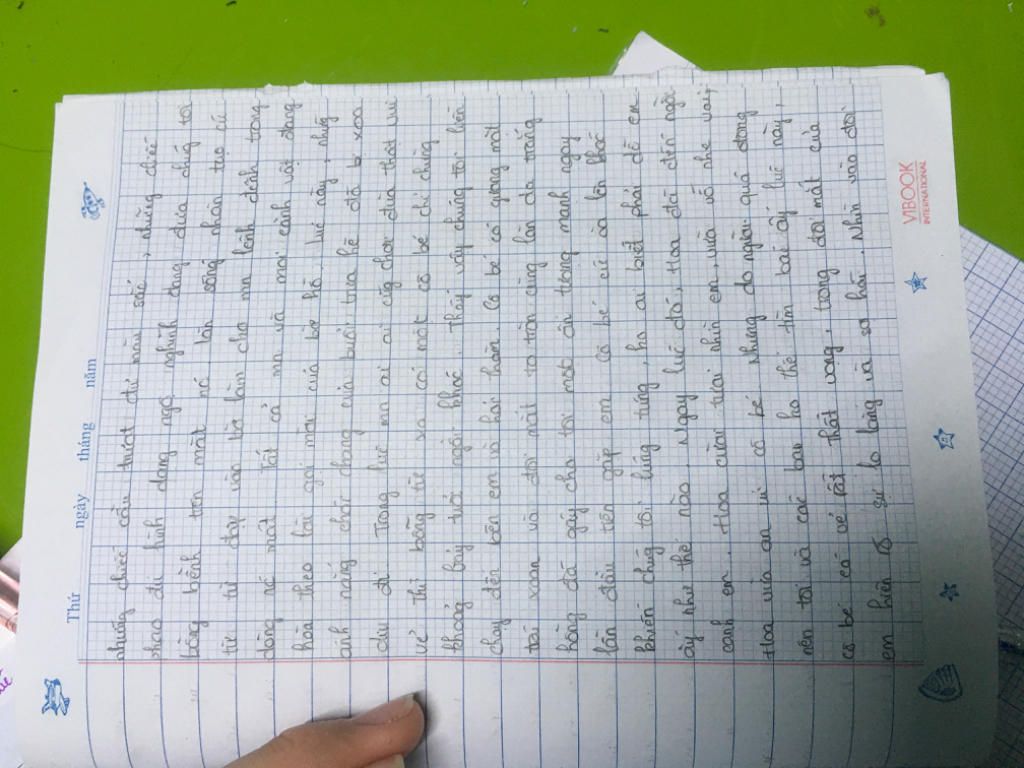 Thứ ngày tháng năm
những chiếc cầu trượt đủ màu sắc, những chiếc
phao đủ hình dạng ngộ nghĩnh đang đưa chúng tôi
bồng bềnh trên mặt nó làn sóng nhân tạo cú
từ từ dạy vào bờ làm cho ma lành dềnh trong
dòng nước mát. Tất cả mn và mọi cảnh vật đang
hòa theo lời gọi mời của bờ hồ, lúc này, những
ánh nắng chói chang của buổi trưa hè đã bị xoa
dịu đi. Trong lúc mn ai ai cũng chơi đùa thật vui
vẻ thì bỗng từ xa có một cô bé chỉ chừng
khoảng bảy tuổi ngồi khóc. Thấy vậy chúng tôi liền
chạy đến bên em và hỏi han. Cô bé có gương mặt
trái xoan và đôi mắt to tròn cùng làn da trắng
hồng đã gây cho tôi một ấn tượng mạnh ngay
lần đầu tiên gặp em. Cô bé cứ òa lên khóc
khiến chúng tôi lúng túng, ko ai biết phải dỗ em
ấy như thế nào. Ngay lúc đó, Hoa đã đến ngồi
cạnh em. Hoa cười tươi nhìn em, vừa vỗ nhẹ vai,
Hoa vừa an ủi cô bé. Nhưng do người quá đông
nên tôi và các bạn ko thể tìm ba cô ấy lúc này,
cô bé có vẻ rất thất vọng, trong đôi mắt của
em hiện rõ sự lo lắng và sợ hãi. Nhìn vào đôi
VIBOOK
INTERNATIONAL